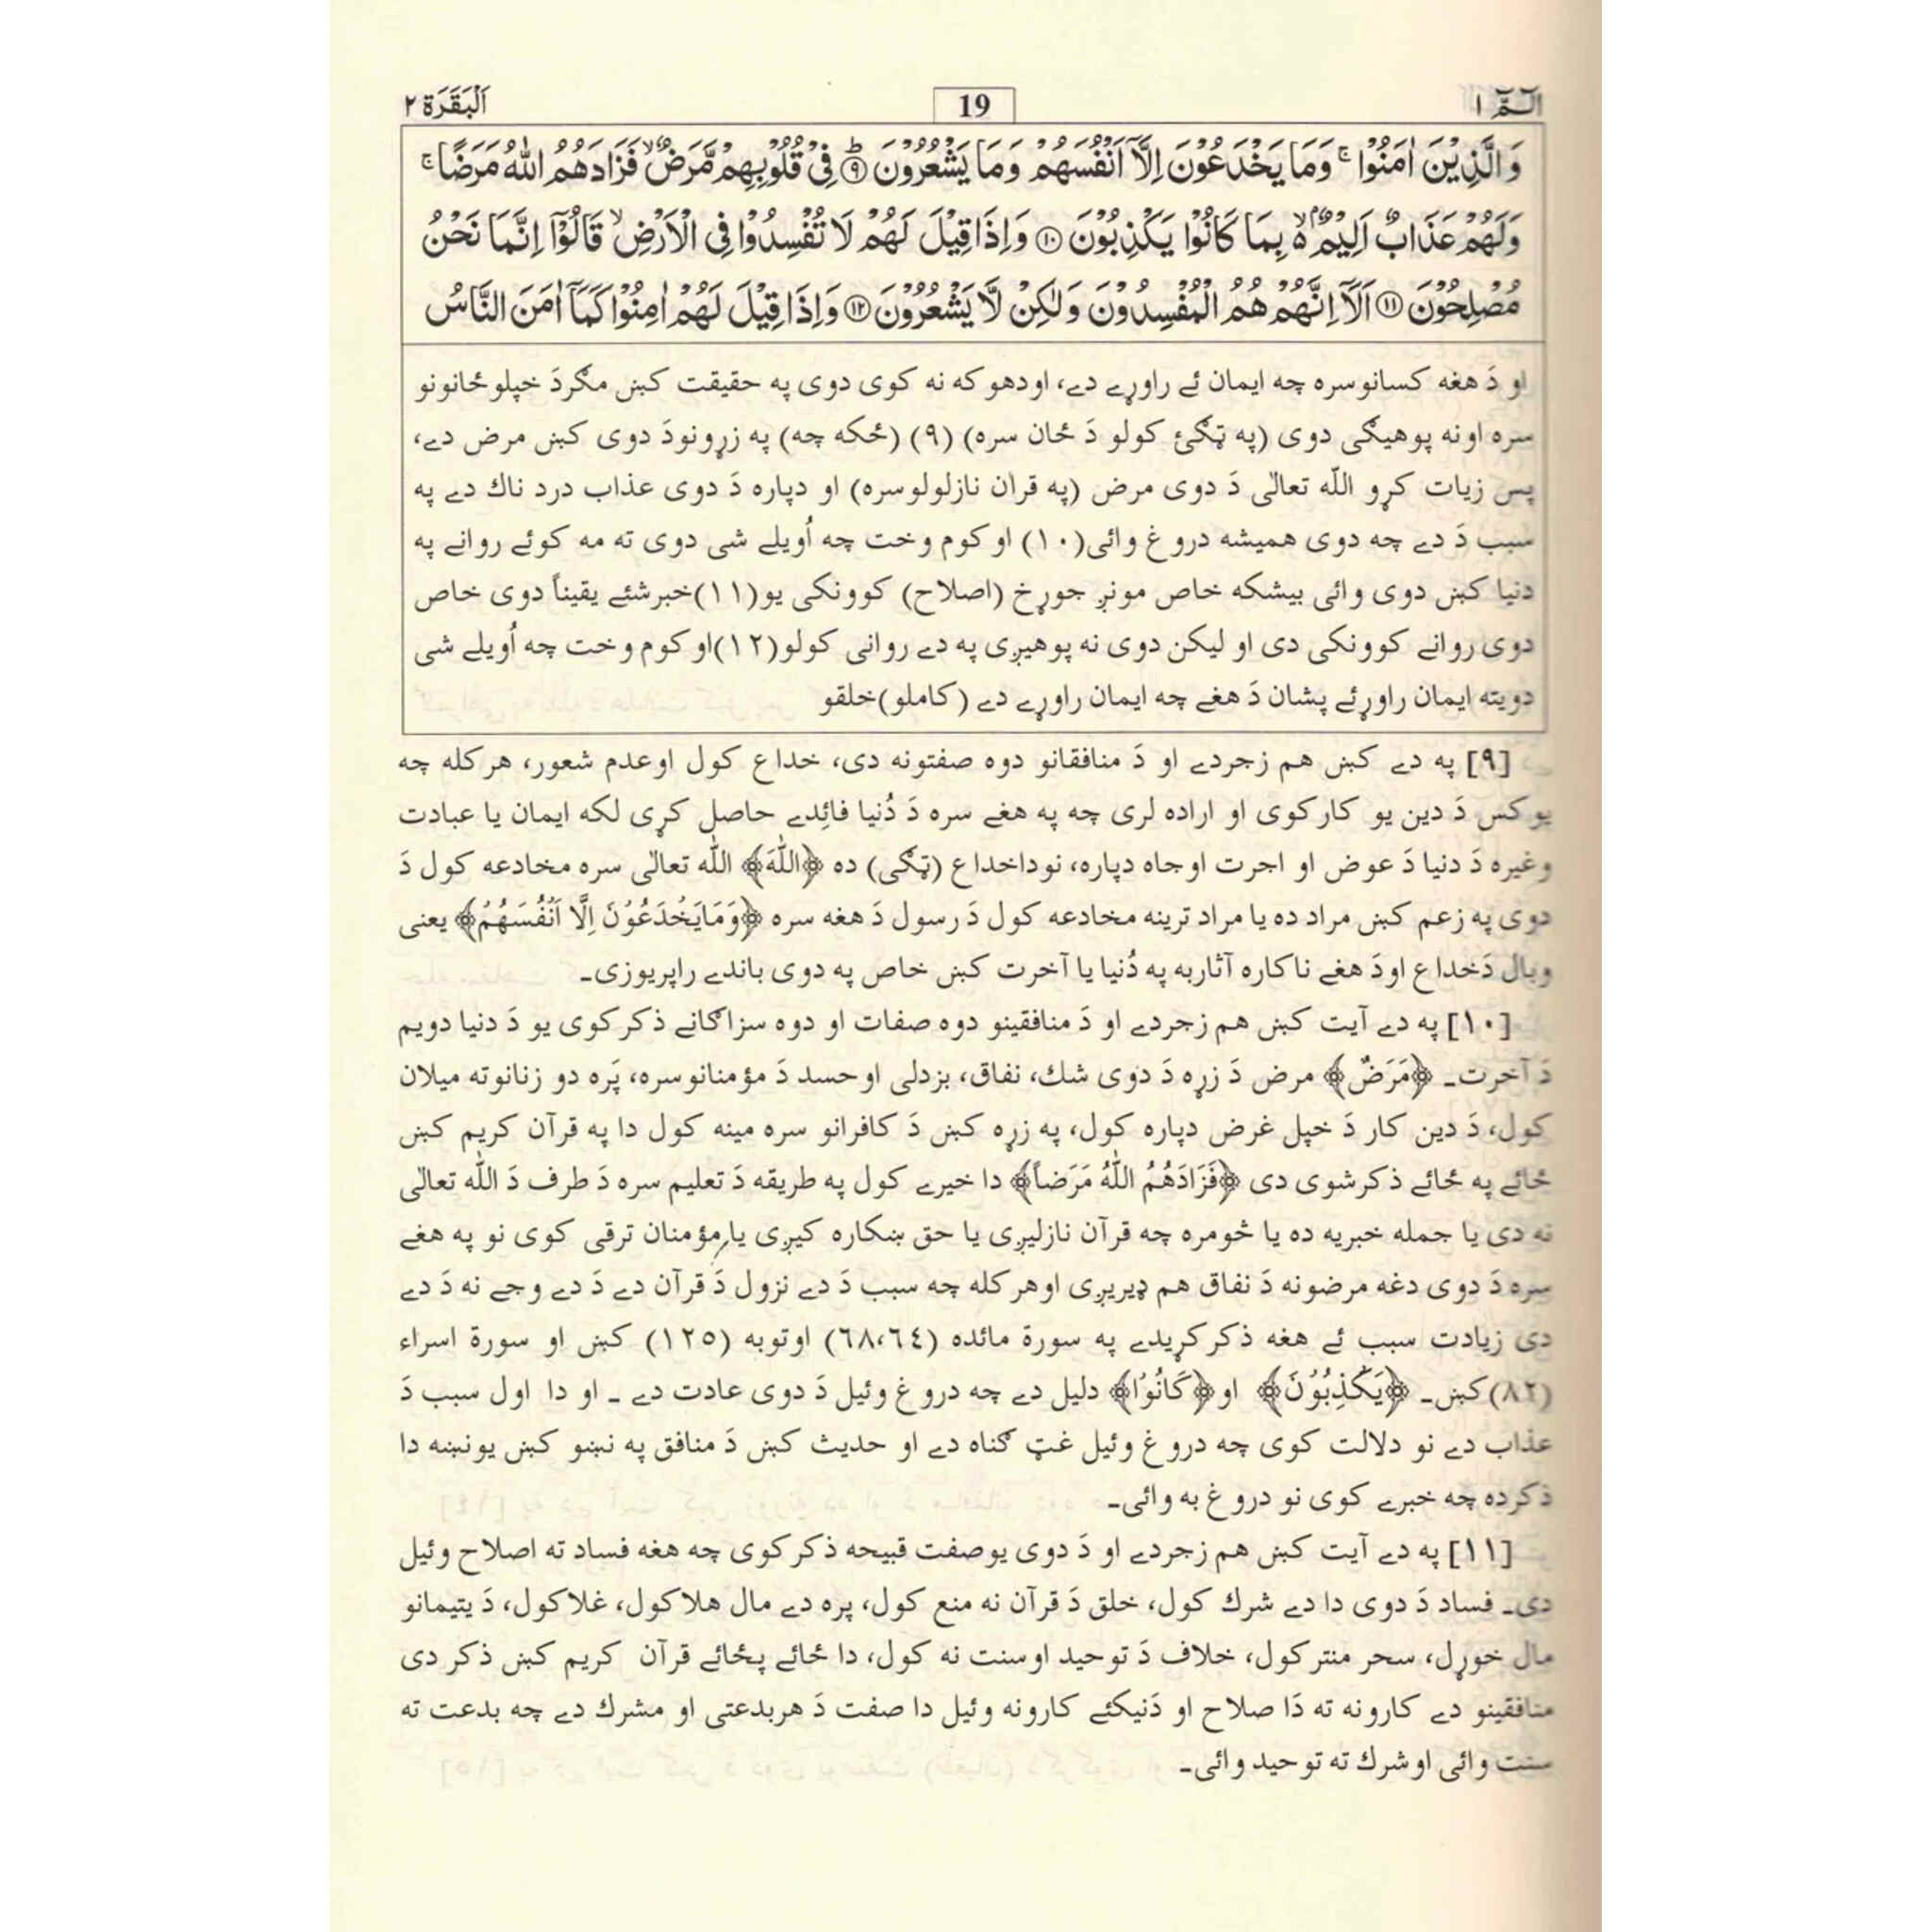 الٓـمّٓ ١ 19 اَلْبَقَرَة ٢
وَالَّذِيْنَ اٰمَنُوْا ۚ وَمَا يَخْدَعُوْنَ اِلَّآ اَنْفُسَهُمْ وَمَا يَشْعُرُوْنَ ؕ۝۹ فِىْ قُلُوْبِهِمْ مَّرَضٌ ۙ فَزَادَهُمُ اللّٰهُ مَرَضًا ۚ
وَلَهُمْ عَذَابٌ اَلِيْمٌۢ ۙ۬ بِمَا كَانُوْا يَكْذِبُوْنَ ۝۱۰ وَاِذَا قِيْلَ لَهُمْ لَا تُفْسِدُوْا فِى الْاَرْضِ ۙ قَالُوْٓا اِنَّمَا نَحْنُ
مُصْلِحُوْنَ ۝۱۱ اَلَآ اِنَّهُمْ هُمُ الْمُفْسِدُوْنَ وَلٰكِنْ لَّا يَشْعُرُوْنَ ۝۱۲ وَاِذَا قِيْلَ لَهُمْ اٰمِنُوْا كَمَآ اٰمَنَ النَّاسُ
او دَ هغه كسانوسره چه ايمان ئے راوړے دے، اودهوكه نه كوى دوى په حقيقت كښ مګردَ خپلوځانونو
سره اونه پوهيګى دوى (په ټګئ كولو دَ ځان سره) (٩) (ځكه چه) په زړونودَ دوى كښ مرض دے،
پس زيات كړو اللّه تعالٰى دَ دوى مرض (په قراٰن نازلولوسره) او دپاره دَ دوى عذاب درد ناك دے په
سبب دَ دے چه دوى هميشه دروغ وائى(١٠) اوكوم وخت چه اُويلے شى دوى ته مه كوئے روانے په
دنيا كښ دوى وائى بيشكه خاص مونږ جوړخ (اصلاح) كوونكى يو(١١)خبرشئے يقيناً دوى خاص
دوى روانے كوونكى دى او ليكن دوى نه پوهيږى په دے روانى كولو(١٢)اوكوم وخت چه اُويلے شى
دويته ايمان راوړئے پشان دَ هغے چه ايمان راوړے دے (كاملو)خلقو
[٩] په دے كښ هم زجردے او دَ منافقانو دوه صفتونه دى، خداع كول اوعدم شعور، هركله چه
يوكس دَ دين يو كاركوى او اراده لرى چه په هغے سره دَ دُنيا فائِدے حاصل كړى لكه ايمان يا عبادت
وغيره دَ دنيا دَ عوض او اجرت اوجاه دپاره، نوداخداع (ټګى) ده ﴿اللّٰهَ﴾ اللّٰه تعالٰى سره مخادعه كول دَ
دوى په زعم كښ مراد ده يا مراد ترينه مخادعه كول دَ رسول دَ هغه سره ﴿وَمَايَخْدَعُوْنَ اِلَّا اَنْفُسَهُمْ﴾ يعنى
وبال دَخداع اودَ هغے ناكاره آثاربه په دُنيا يا آخرت كښ خاص په دوى باندے راپريوزى۔
[١٠] په دے آيت كښ هم زجردے او دَ منافقينو دوه صفات او دوه سزاګانے ذكركوى يو دَ دنيا دويم
دَ آخرت۔ ﴿مَرَضٌ﴾ مرض دَ زړه دَ دوى شك، نفاق، بزدلى اوحسد دَ مؤمنانوسره، پَره دو زنانوته ميلان
كول، دَ دين كار دَ خپل غرض دپاره كول، په زړه كښ دَ كافرانو سره مينه كول دا په قرآن كريم كښ
ځائے په ځائے ذكرشوى دى ﴿فَزَادَهُمُ اللّٰهُ مَرَضاً﴾ دا خيرے كول په طريقه دَ تعليم سره دَ طرف دَ اللّٰه تعالٰى
نه دى يا جمله خبريه ده يا څومره چه قرآن نازليږى يا حق ښكاره كيږى يا مؤمنان ترقى كوى نو په هغے
سره دَ دوى دغه مرضونه دَ نفاق هم ډيريږى اوهركله چه سبب دَ دے نزول دَ قرآن دے دَ دے وجے نه دَ دے
دى زيادت سبب ئے هغه ذكركړيدے په سورة مائده (٦٨،٦٤) اوتوبه (١٢٥) كښ او سورة اسراء
(٨٢)كښ۔ ﴿يَكْذِبُوْنَ﴾ او﴿كَانُوْا﴾ دليل دے چه دروغ وئيل دَ دوى عادت دے ۔ او دا اول سبب دَ
عذاب دے نو دلالت كوى چه دروغ وئيل غټ ګناه دے او حديث كښ دَ منافق په نښو كښ يونښه دا
ذكرده چه خبرے كوى نو دروغ به وائى۔
[١١] په دے آيت كښ هم زجردے او دَ دوى يوصفت قبيحه ذكركوى چه هغه فساد ته اصلاح وئيل
دى۔ فساد دَ دوى دا دے شرك كول، خلق دَ قرآن نه منع كول، پره دے مال هلاكول، غلاكول، دَ يتيمانو
مال خوړل، سحر منتركول، خلاف دَ توحيد اوسنت نه كول، دا ځائے پځائے قرآن كريم كښ ذكر دى
منافقينو دے كارونه ته دَا صلاح او دَنيكئے كارونه وئيل دا صفت دَ هربدعتى او مشرك دے چه بدعت ته
سنت وائى اوشرك ته توحيد وائى۔